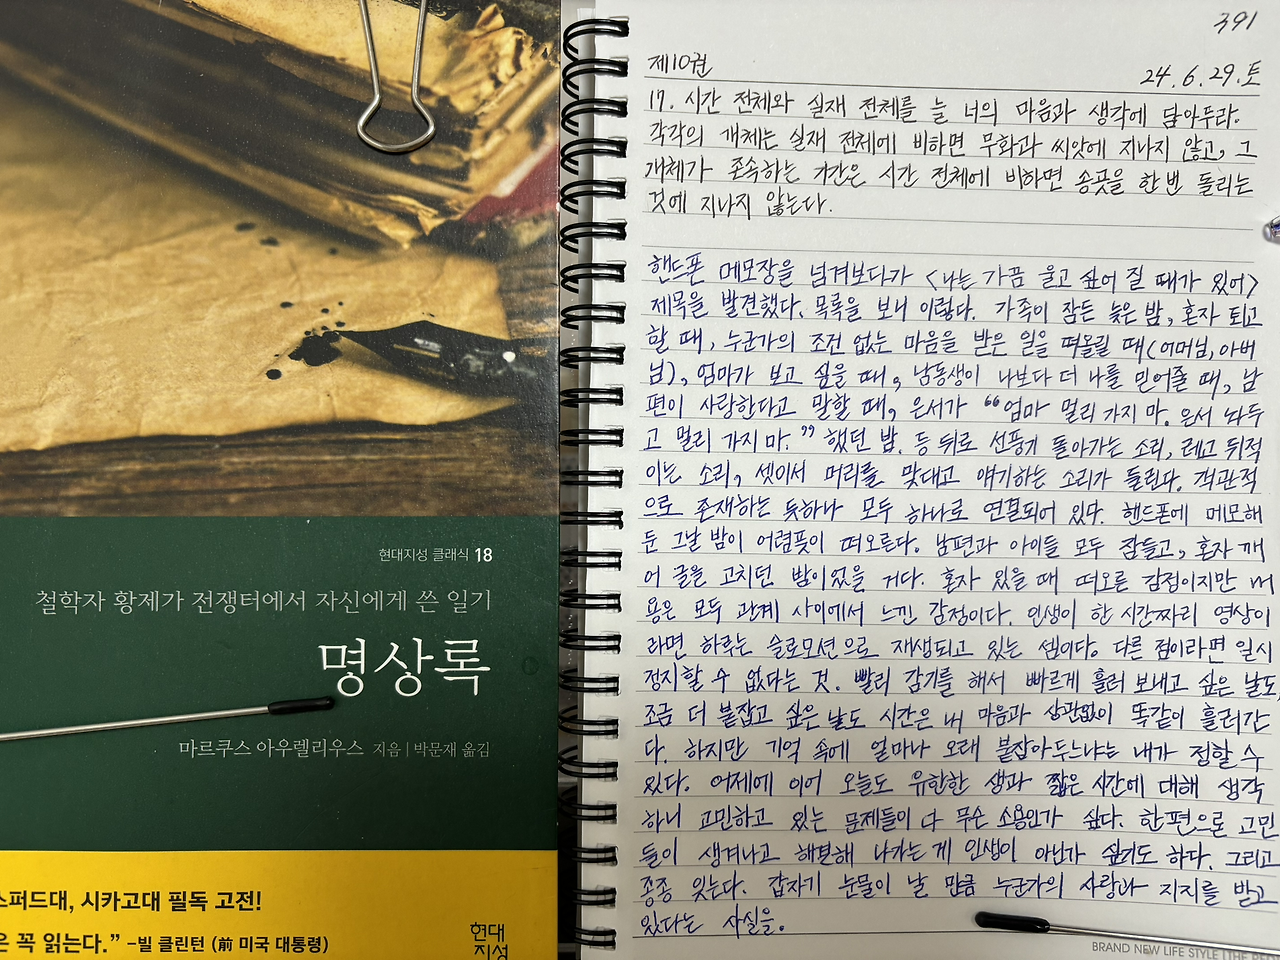 현대지성 클래식 18
철학자 황제가 전쟁터에서 자신에게 쓴 일기
명상록
마르쿠스 아우렐리우스 지음 | 박문재 옮김
스퍼드대, 시카고대 필독 고전!
은 꼭 읽는다.” –빌 클린턴 (前 미국 대통령)
현대
지성
391
제10권
24. 6. 29. 토
17. 시간 전체와 실재 전체를 늘 너의 마음과 생각에 담아두라.
각각의 개체는 실재 전체에 비하면 무화과 씨앗에 지나지 않고, 그
개체가 존속하는 기간은 시간 전체에 비하면 송곳을 한 번 돌리는
것에 지나지 않는다.
핸드폰 메모장을 넘겨보다가 <나는 가끔 울고 싶어 질 때가 있어>
제목을 발견했다. 목록을 보니 이렇다. 가족이 잠든 늦은 밤, 혼자 퇴고
할 때, 누군가의 조건 없는 마음을 받은 일을 떠올릴 때(어머님, 아버
님), 엄마가 보고 싶을 때, 남동생이 나보다 더 나를 믿어줄 때, 남
편이 사랑한다고 말할 때, 은서가 “엄마 멀리 가지 마. 은서 놔두
고 멀리 가지 마.” 했던 밤. 등 뒤로 선풍기 돌아가는 소리, 레고 뒤적
이는 소리, 셋이서 머리를 맞대고 얘기하는 소리가 들린다. 객관적
으로 존재하는 듯하나 모두 하나로 연결되어 있다. 핸드폰에 메모해
둔 그날 밤이 어렴풋이 떠오른다. 남편과 아이들 모두 잠들고, 혼자 깨
어 글을 고치던 밤이었을 거다. 혼자 있을 때 떠오른 감정이지만 내
용은 모두 관계 사이에서 느낀 감정이다. 인생이 한 시간짜리 영상이
라면 하루는 슬로모션으로 재생되고 있는 셈이다. 다른 점이라면 일시
정지할 수 없다는 것. 빨리 감기를 해서 빠르게 흘려 보내고 싶은 날도,
조금 더 붙잡고 싶은 날도 시간은 내 마음과 상관없이 똑같이 흘러간
다. 하지만 기억 속에 얼마나 오래 붙잡아두느냐는 내가 정할 수
있다. 어제에 이어 오늘도 유한한 생과 짧은 시간에 대해 생각
하니 고민하고 있는 문제들이 다 무슨 소용인가 싶다. 한편으로 고민
들이 생겨나고 해결해 나가는 게 인생이 아닌가 싶기도 하다. 그리고
종종 잊는다. 갑자기 눈물이 날 만큼 누군가의 사랑과 지지를 받고
있다는 사실을.
BRAND NEW LIFE STYLE